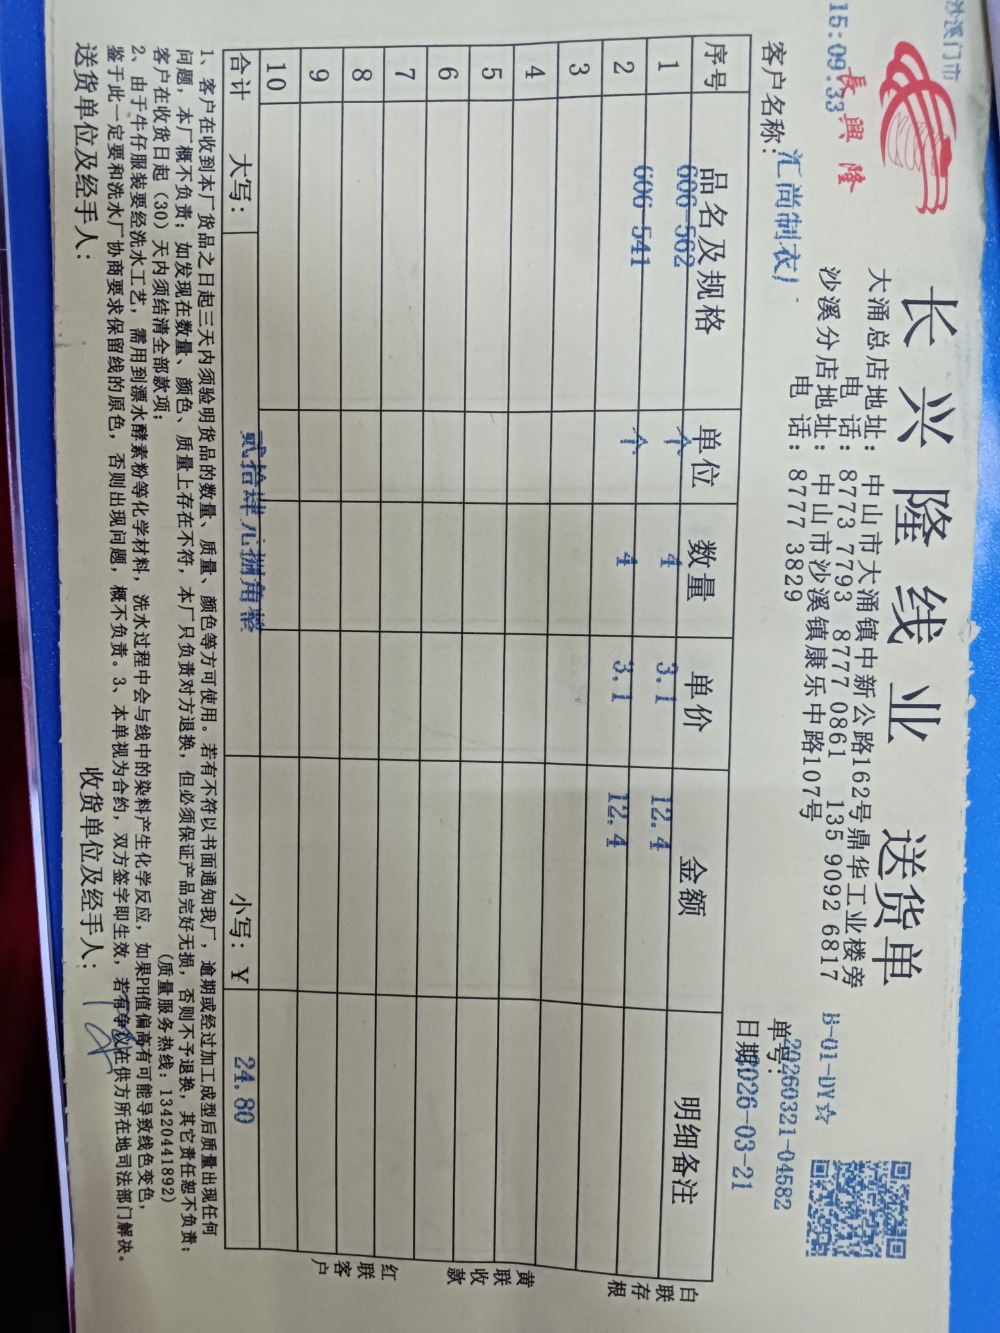 沙溪门市
15:09:33
長興隆
长兴隆线业 送货单
大涌总店地址：中山市大涌镇中新公路162号鼎华工业楼旁
电 话：8773 7793 8777 0861 135 9092 6817
沙溪分店地址：中山市沙溪镇康乐中路107号
电 话：8777 3829
B-01-DY☆
单号：20260321-04582
客户名称：汇尚制衣厂
日期 2026-03-21
序号 品名及规格 单位 数量 单价 金额 明细备注
1 606-562 个 4 3.1 12.4
2 606-541 个 4 3.1 12.4
3
4
5
6
7
8
9
10
合计 大写：贰拾肆元捌角整 小写：¥ 24.80
白联存根
黄联收款
红联客户
1、客户在收到本厂货品之日起三天内须验明货品的数量、质量、颜色等方可使用。若有不符以书面通知我厂，逾期或经过加工成型后质量出现任何
问题，本厂概不负责；如发现在数量、颜色、质量上存在不符，本厂只负责对方退换，但必须保证产品完好无损，否则不予退换，其它责任恕不负责；
客户在收货日起（30）天内须结清全部款项； （质量服务热线：13420441892）
2、由于牛仔服装要经洗水工艺，需用到漂水酵素粉等化学材料，洗水过程中会与线中的染料产生化学反应，如果PH值偏高有可能导致线色变色，
鉴于此一定要和洗水厂协商要求保留线的原色，否则出现问题，概不负责。3、本单视为合约，双方签字即生效，若有争议在供方所在地司法部门解决。
送货单位及经手人： 收货单位及经手人：